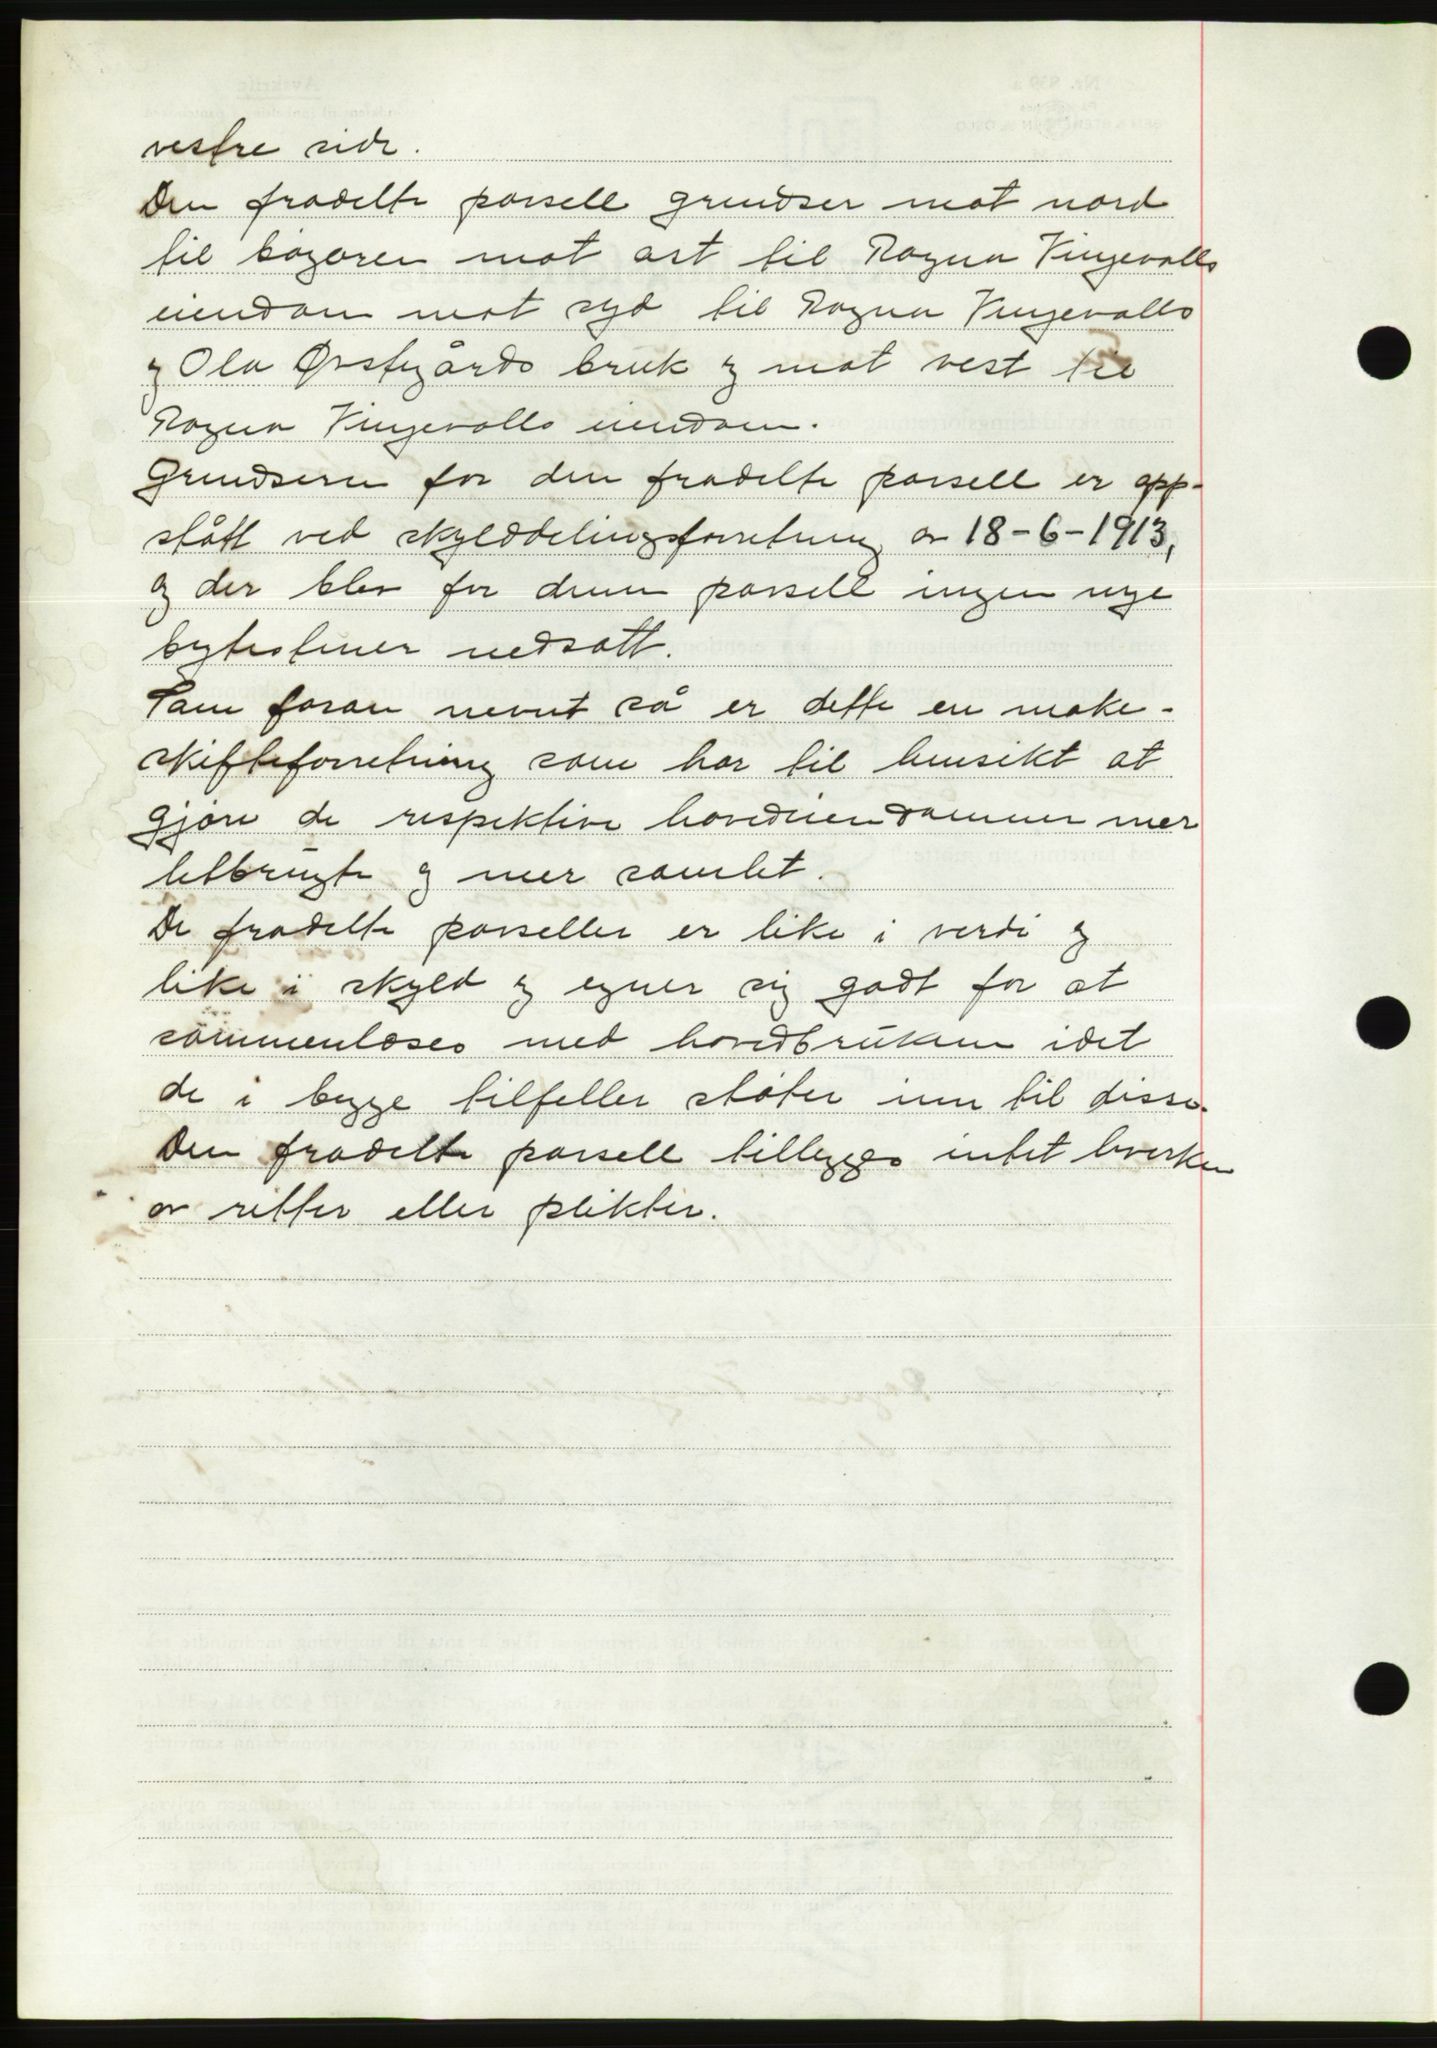 vestre side.
Den fradelte parsell grendser mot nord
til bøgaren mot øst til Ragna Vingevolls
eiendom mot syd til Ragna Vingevolls
og Ola Øvstegårds bruk og mot vest til
Ragna Vingevolls eiendom.
Grendsene for den fradelte parsell er opp-
stått ved skylddelingsforretning av 18-6-1913,
og der blev for denne parsell ingen nye
bytesteiner nedsatt.
Som foran nevnt så er dette en make-
skifteforretning som har til hensikt at
gjøre de respektive hovedeiendommer mer
letbrugte og mer samlet.
De fradelte parseller er like i verdi og
like i skyld og egner sig godt for at
sammenløses med hovedbrukene idet
de i begge tilfeller støter inn til disse.
Den fradelte parsell tillegges intet hverken
av retter eller plikter.